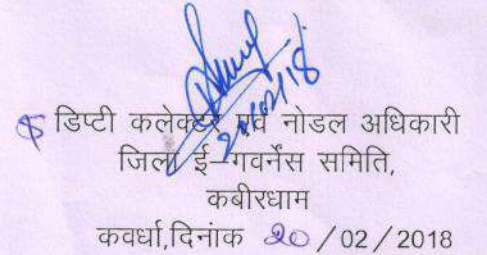 डिप्टी कलेक्टर एवं नोडल अधिकारी
जिला ई-गवर्नेंस समिति,
कबीरधाम
कवर्धा,दिनांक 20/02/2018